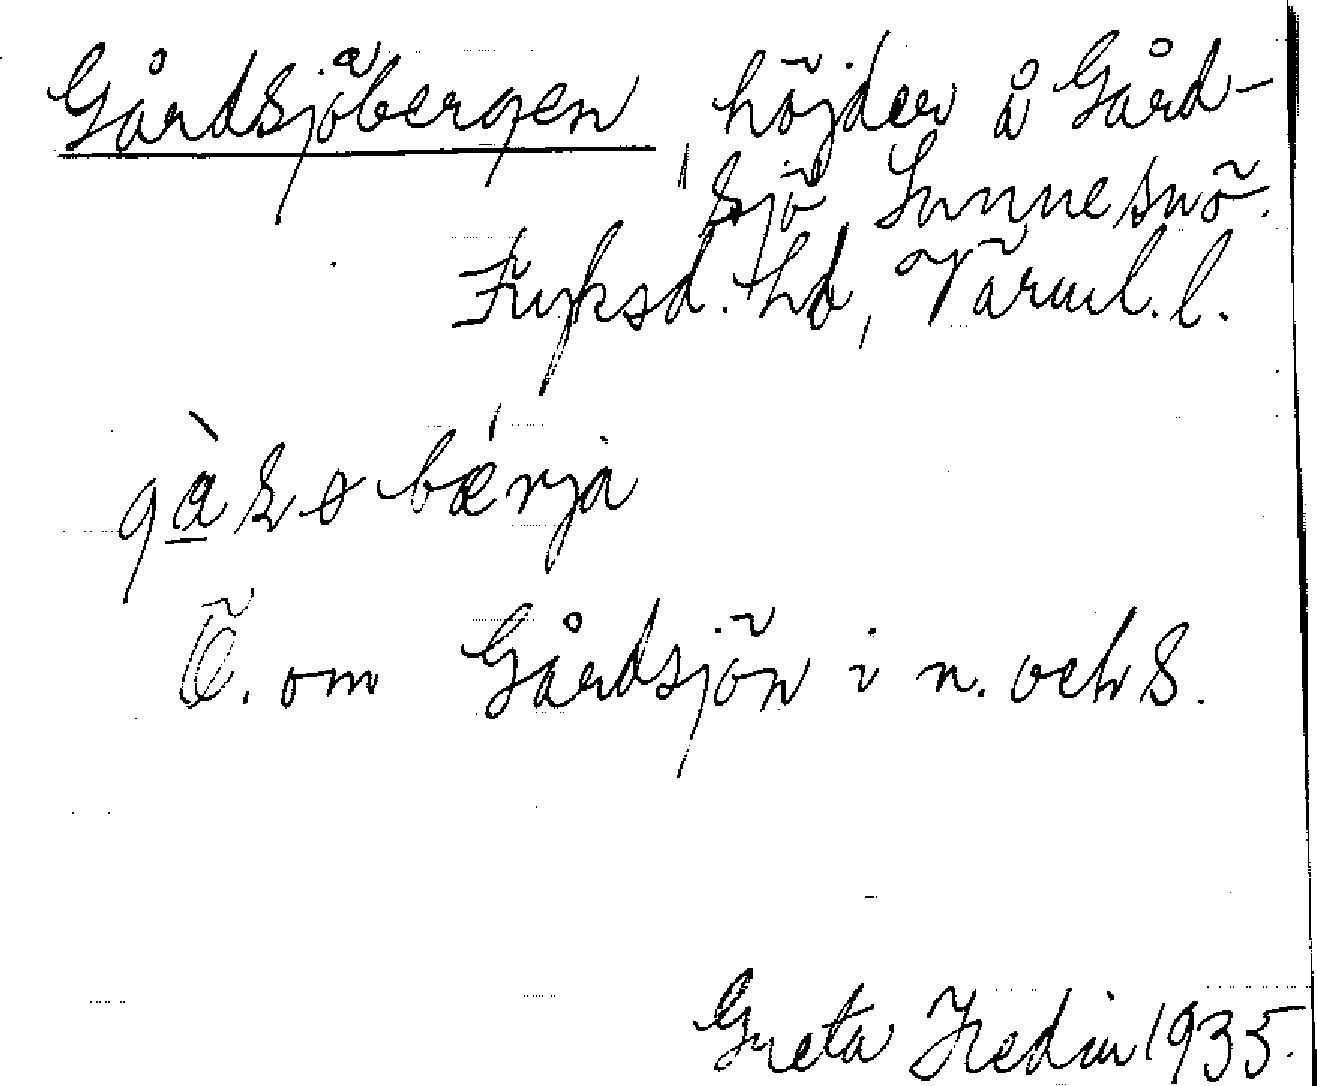 Gårdsjöbergen, höjder å Gård-
sjö, Sunne snö.
Fryksd. hd, Värml. l.
Ö. om Gårdsjön i n. och S.
Greta Hedin 1935.